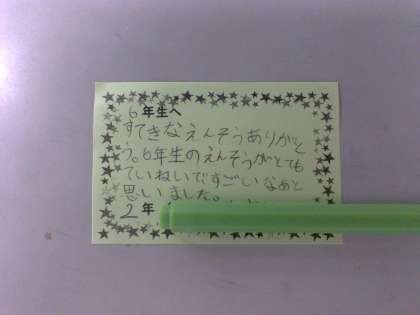 6年生へ
すてきなえんそうありがと
う。6年生のえんそうがとても
ていねいですごいなあと
思いました。
2年